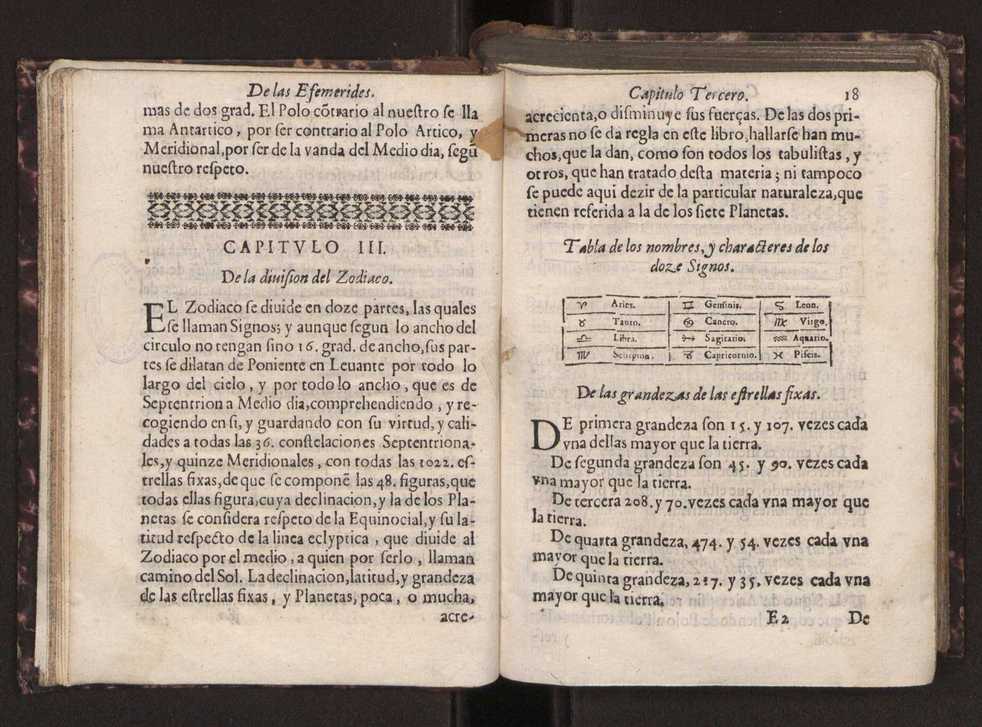 De las Efemerides.
mas de dos grad. El Polo cõtrario al nuestro se lla
ma Antartico, por ser contrario al Polo Artico, y
Meridional, por ser de la vanda del Medio dia, segũ
nuestro respeto.
CAPITVLO III.
De la diuision del Zodiaco.
EL Zodiaco se diuide en doze partes, las quales
se llaman Signos; y aunque segun lo ancho del
circulo no tengan sino 16. grad. de ancho, sus par-
tes se dilatan de Poniente en Leuante por todo lo
largo del cielo, y por todo lo ancho, que es de
Septentrion a Medio dia, comprehendiendo, y re-
cogiendo en si, y guardando con su virtud, y cali-
dades a todas las 36. constelaciones Septentriona-
les, y quinze Meridionales, con todas las 1022. es-
trellas fixas, de que se componẽ las 48. figuras, que
todas ellas figura, cuya declinacion, y la de los Pla-
netas se considera respeto de la Equinocial, y su la-
titud respecto de la linea eclyptica, que diuide al
Zodiaco por el medio, a quien por serlo, llaman
camino del Sol. La declinacion, latitud, y grandeza
de las estrellas fixas, y Planetas, poca, o mucha,
acre-
Capitulo Tercero. 18
acrecienta, o disminuye sus fuerças. De las dos pri-
meras no se da regla en este libro, hallarse han mu-
chos, que la dan, como son todos los tabulistas, y
otros, que han tratado desta materia; ni tampoco
se puede aqui dezir de la particular naturaleza, que
tienen referida a la de los siete Planetas.
Tabla de los nombres, y characteres de los
doze Signos.
♈ Aries. ♊ Geminis. ♌ Leon.
♉ Tauro. ♋ Cancro. ♍ Virgo.
♎ Libra. ♐ Sagitario. ♒ Aquario.
♏ Scorpion. ♑ Capricornio. ♓ Piscis.
De las grandezas de las estrellas fixas.
DE primera grandeza son 15. y 107. vezes cada
vna dellas mayor que la tierra.
De segunda grandeza son 45. y 90. vezes cada
vna mayor que la tierra.
De tercera 208. y 70. vezes cada vna mayor que
la tierra.
De quarta grandeza, 474. y 54. vezes cada vna
mayor que la tierra.
De quinta grandeza, 217. y 35. vezes cada vna
mayor que la tierra.
E2 De